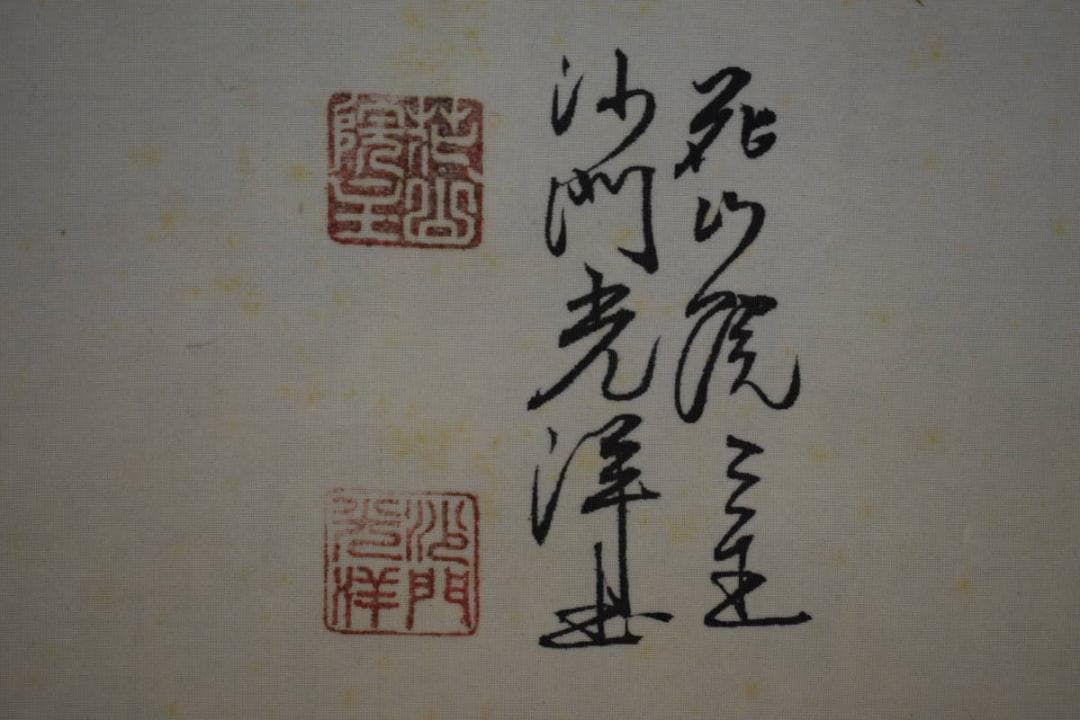 花山院々主
沙門光洋
花山
院主
沙門
光洋